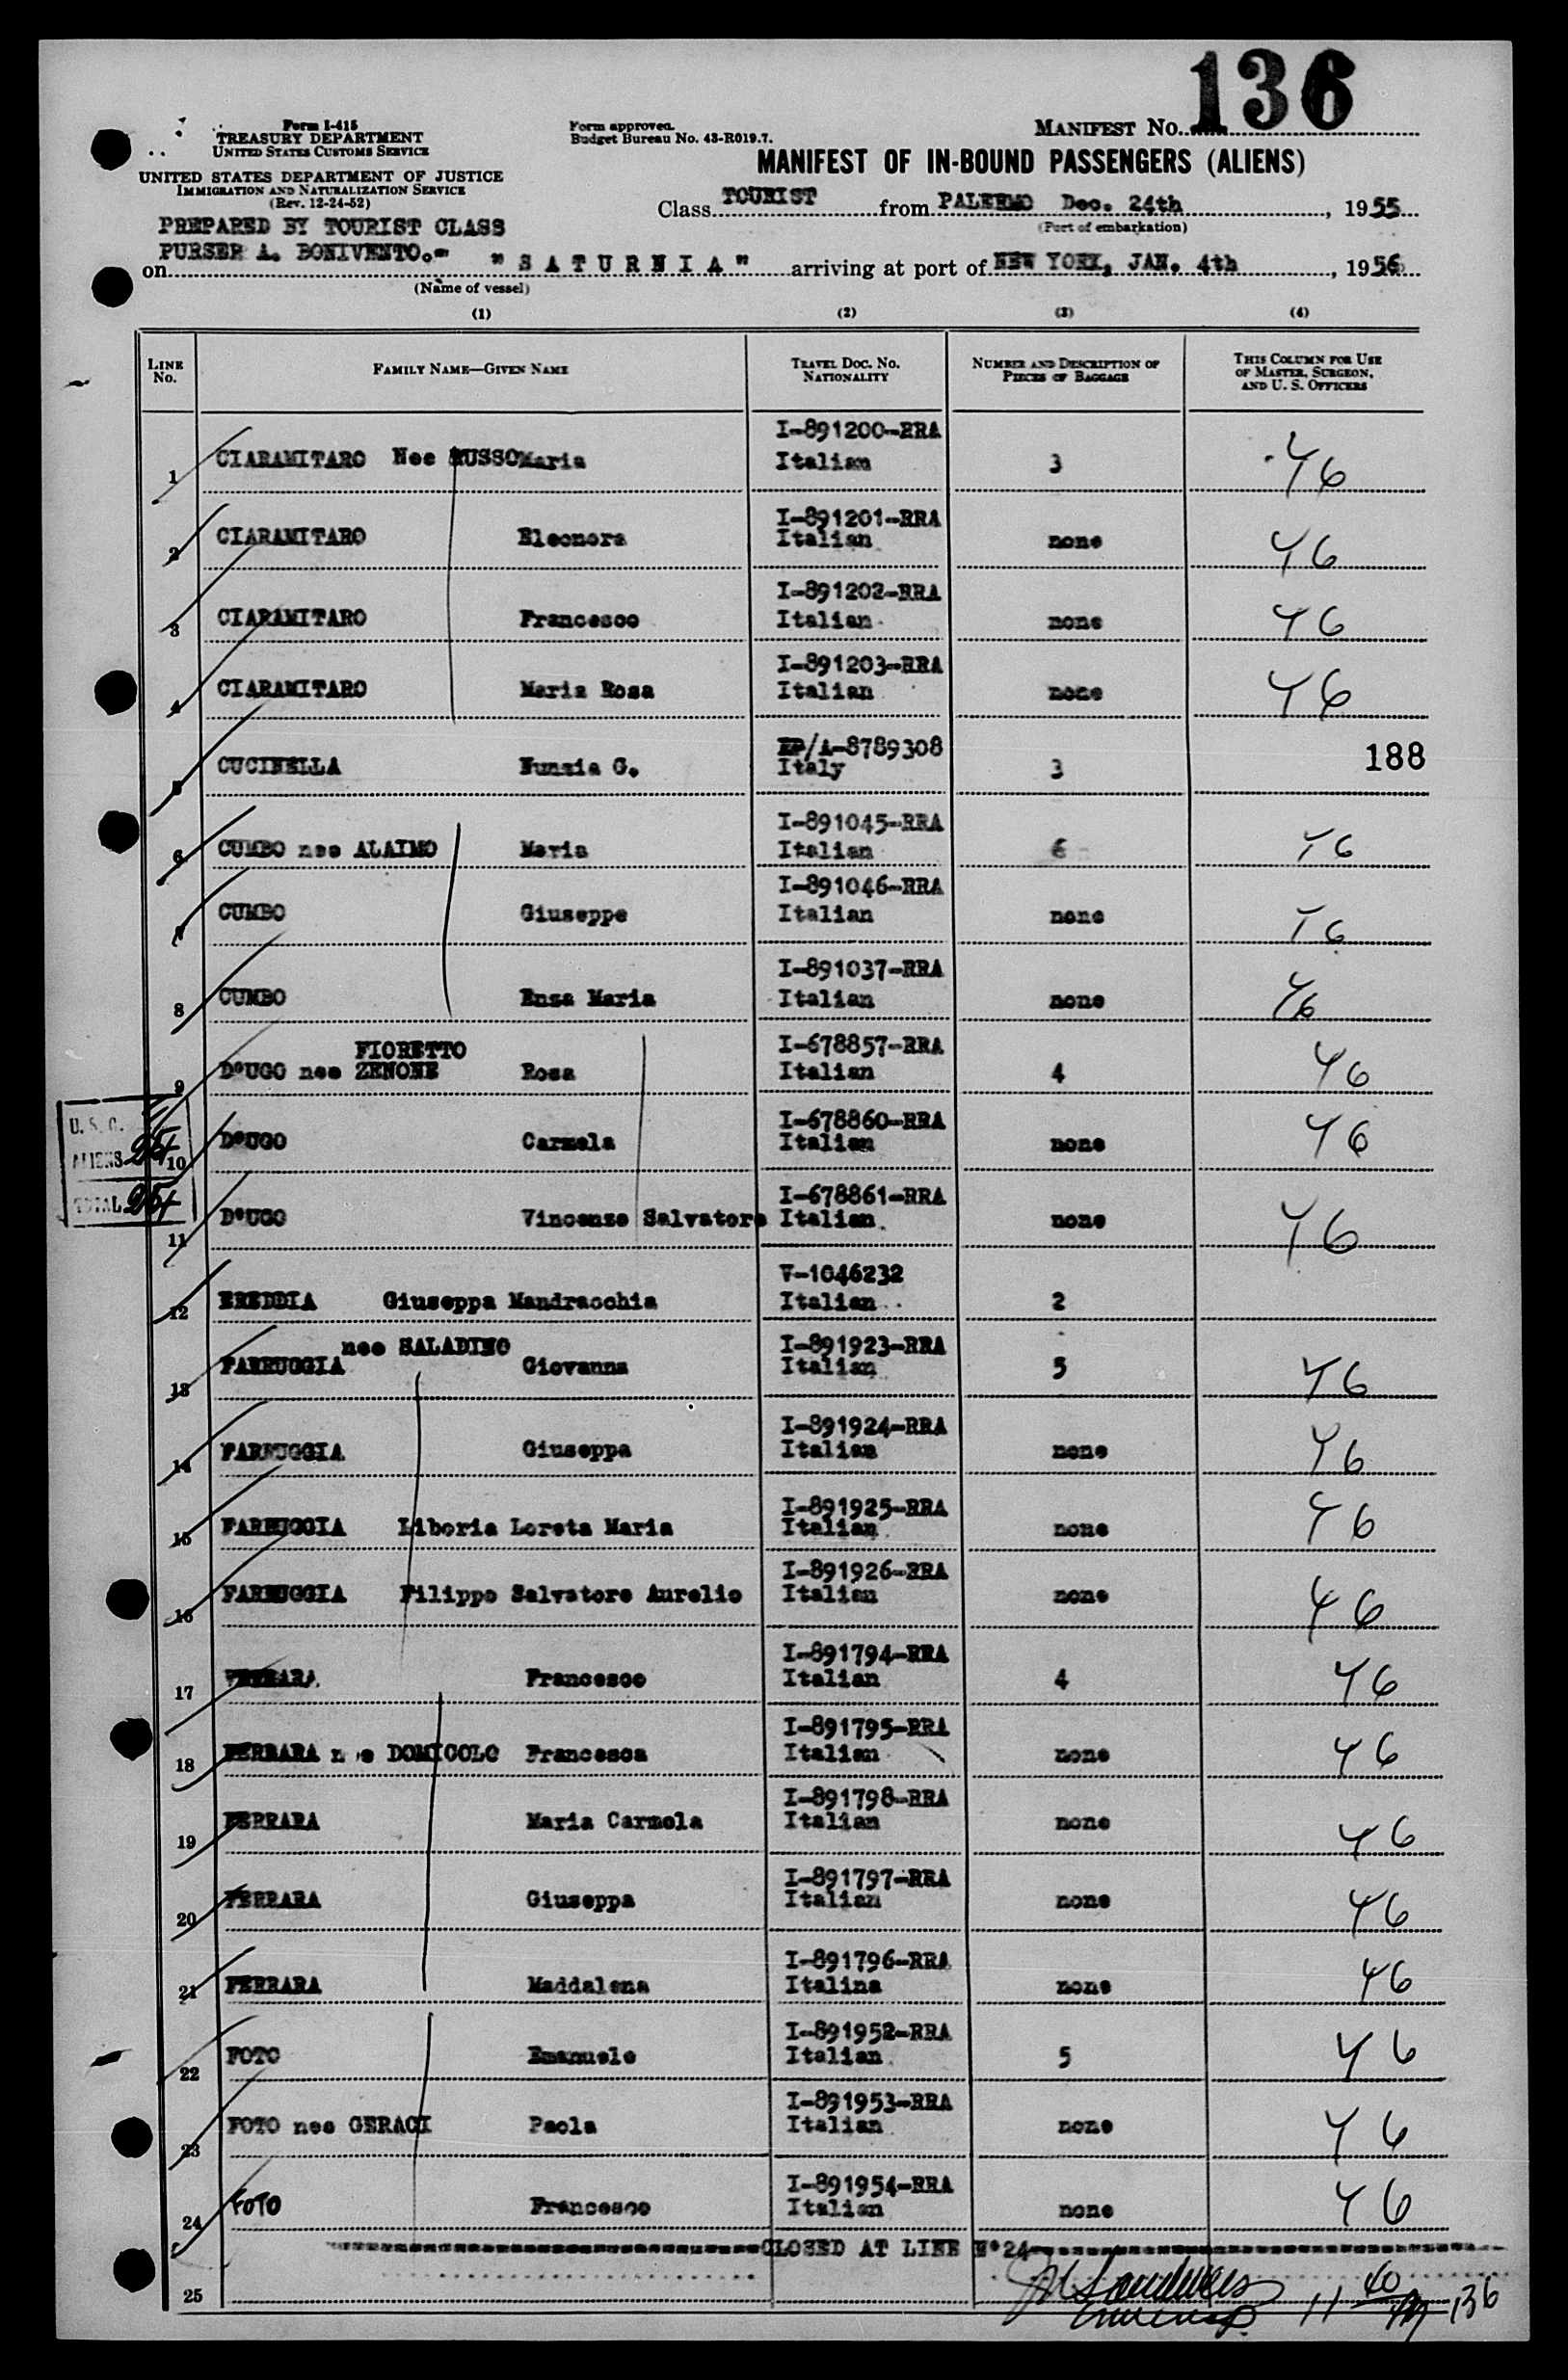 136
Form I-415
TREASURY DEPARTMENT
UNITED STATES CUSTOMS SERVICE
UNITED STATES DEPARTMENT OF JUSTICE
IMMIGRATION AND NATURALIZATION SERVICE
(Rev. 12-24-52)
Form approved.
Budget Bureau No. 43-R019.7.
MANIFEST NO.
MANIFEST OF IN-BOUND PASSENGERS (ALIENS)
Class TOURIST from PALERMO Dec. 24th, 1955
(Port of embarkation)
PREPARED BY TOURIST CLASS
PURSER A. BONIVENTO.-
on "SATURNIA" arriving at port of NEW YORK, JAN. 4th, 1956
(Name of vessel)
(1) (2) (3) (4)
LINE NO. FAMILY NAME—GIVEN NAME TRAVEL DOC. NO. NATIONALITY NUMBER AND DESCRIPTION OF PIECES OF BAGGAGE THIS COLUMN FOR USE OF MASTER, SURGEON, AND U. S. OFFICERS
I-891200-RRA
1 CIARAMITARO Nee RUSSO Maria Italian 3 46
I-891201-RRA
2 CIARAMITARO Eleonora Italian none 46
I-891202-RRA
3 CIARAMITARO Francesco Italian none 46
I-891203-RRA
4 CIARAMITARO Maria Rosa Italian none 46
EP/A-8789308
5 CUCINELLA Nunzia G. Italy 3 188
I-891045-RRA
6 CUMBO nee ALAIMO Maria Italian 6 46
I-891046-RRA
7 CUMBO Giuseppe Italian none 46
I-891037-RRA
8 CUMBO Enza Maria Italian none 46
FIORETTO I-678857-RRA
9 D'UGO nee ZENONE Rosa Italian 4 46
I-678860-RRA
10 D'UGO Carmela Italian none 46
I-678861-RRA
11 D'UGO Vincenzo Salvatore Italian none 46
U. S. C.
ALIENS 24
TOTAL 24
V-1046232
12 EREDDIA Giuseppa Mandracchia Italian 2
nee SALADINO I-891923-RRA
13 FARRUGGIA Giovanna Italian 5 46
I-891924-RRA
14 FARRUGGIA Giuseppa Italian none 46
I-891925-RRA
15 FARRUGGIA Liboria Loreta Maria Italian none 46
I-891926-RRA
16 FARRUGGIA Filippo Salvatore Aurelio Italian none 46
I-891794-RRA
17 FERRARA Francesco Italian 4 46
I-891795-RRA
18 FERRARA nee DOMICOLO Francesca Italian none 46
I-891798-RRA
19 FERRARA Maria Carmela Italian none 46
I-891797-RRA
20 FERRARA Giuseppa Italian none 46
I-891796-RRA
21 FERRARA Maddalena Italina none 46
I-891952-RRA
22 FOTO Emanuele Italian 5 46
I-891953-RRA
23 FOTO nee GERACI Paola Italian none 46
I-891954-RRA
24 FOTO Francesco Italian none 46
CLOSED AT LINE N°24
25
11 40 136